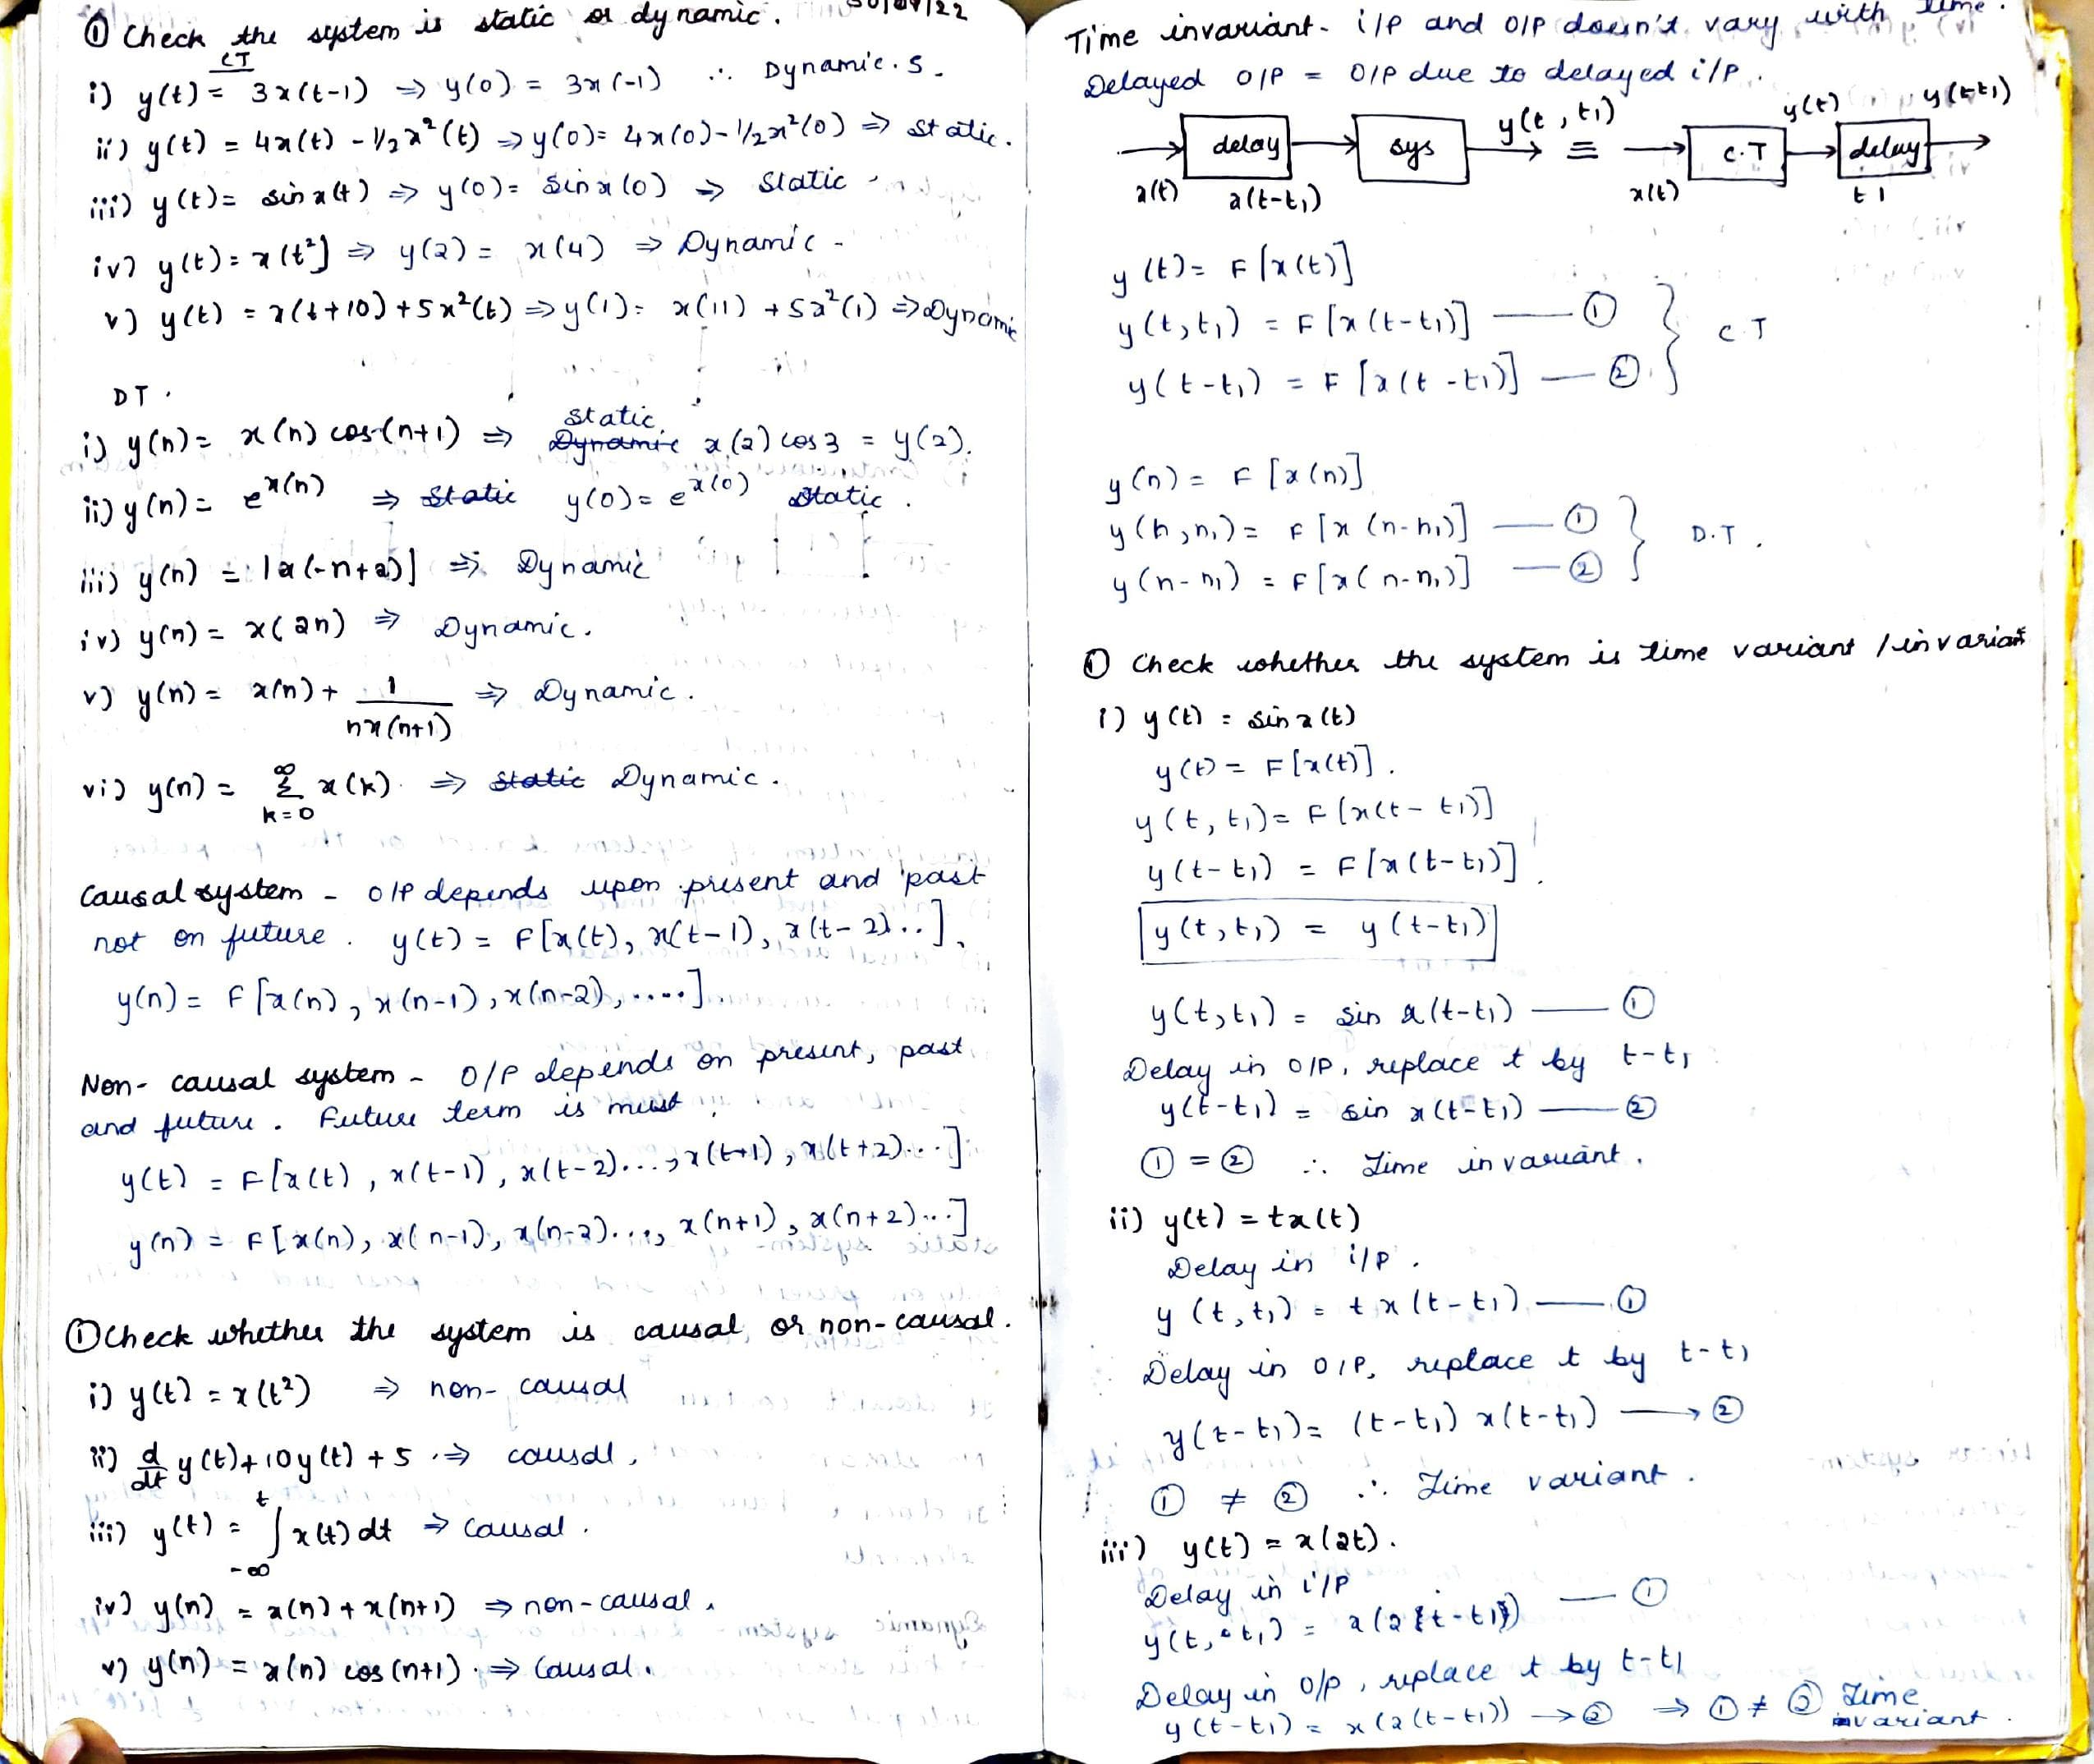 ① Check the system is static or dynamic.
CT
i) y(t) = 3x(t-1) ⇒ y(0) = 3x(-1) ∴ Dynamic.S.
ii) y(t) = 4x(t) - 1/2 x²(t) ⇒ y(0) = 4x(0) - 1/2 x²(0) ⇒ static.
iii) y(t) = sin x(t) ⇒ y(0) = sin x(0) ⇒ Static
iv) y(t) = x(t²) ⇒ y(2) = x(4) ⇒ Dynamic
v) y(t) = x(t+10) + 5x²(t) ⇒ y(1) = x(11) + 5x²(1) ⇒ Dynamic
DT.
i) y(n) = x(n) cos(n+1) ⇒ static. Dynamic x(2) cos 3 = y(2).
ii) y(n) = e^x(n) ⇒ Static y(0) = e^x(0) static.
iii) y(n) = |x(-n+2)| ⇒ Dynamic
iv) y(n) = x(2n) ⇒ Dynamic.
v) y(n) = x(n) + 1/nx(n+1) ⇒ Dynamic.
vi) y(n) = ∞ Σ k=0 x(k) ⇒ Static Dynamic.
Causal system - O/P depends upon present and past
not on future. y(t) = F[x(t), x(t-1), x(t-2)..].
y(n) = F[x(n), x(n-1), x(n-2),.....]
Non-causal system - O/P depends on present, past
and future. Future term is must.
y(t) = F[x(t), x(t-1), x(t-2)..., x(t+1), x(t+2)...]
y(n) = F[x(n), x(n-1), x(n-2)..., x(n+1), x(n+2)...]
① Check whether the system is causal or non-causal.
i) y(t) = x(t²) ⇒ non-causal
ii) d/dt y(t) + 10y(t) + 5 ⇒ causal.
iii) y(t) = t ∫ -∞ x(t) dt ⇒ causal.
iv) y(n) = x(n) + x(n+1) ⇒ non-causal.
v) y(n) = x(n) cos(n+1) ⇒ Causal.
Time invariant - i/P and O/P doesn't vary with time.
Delayed O/P = O/P due to delayed i/P.
→ delay → sys → y(t, t₁) ≡ → C.T → y(t) delay → y(t-t₁)
x(t) x(t-t₁) x(t) t1
y(t) = F[x(t)]
y(t, t₁) = F[x(t-t₁)] — ①
C.T
y(t-t₁) = F[x(t-t₁)] — ②
y(n) = F[x(n)]
y(n, n₁) = F[x(n-n₁)] — ①
D.T.
y(n-n₁) = F[x(n-n₁)] — ②
① Check whether the system is time variant / invariat
i) y(t) = sin x(t)
y(t) = F[x(t)].
y(t, t₁) = F[x(t-t₁)]
y(t-t₁) = F[x(t-t₁)]
y(t, t₁) = y(t-t₁)
y(t, t₁) = sin x(t-t₁) — ①
Delay in O/P, replace t by t-t₁
y(t-t₁) = sin x(t-t₁) — ②
① = ② ∴ Time invariant.
ii) y(t) = tx(t)
Delay in i/P.
y(t, t₁) = t x(t-t₁) — ①
Delay in O/P, replace t by t-t₁
y(t-t₁) = (t-t₁) x(t-t₁) → ②
① ≠ ② ∴ Time variant.
iii) y(t) = x(2t).
Delay in i/P
y(t, t₁) = x(2{t-t₁}) — ①
Delay in O/P, replace t by t-t₁
y(t-t₁) = x(2(t-t₁)) → ② ⇒ ① ≠ ② Time
variant.